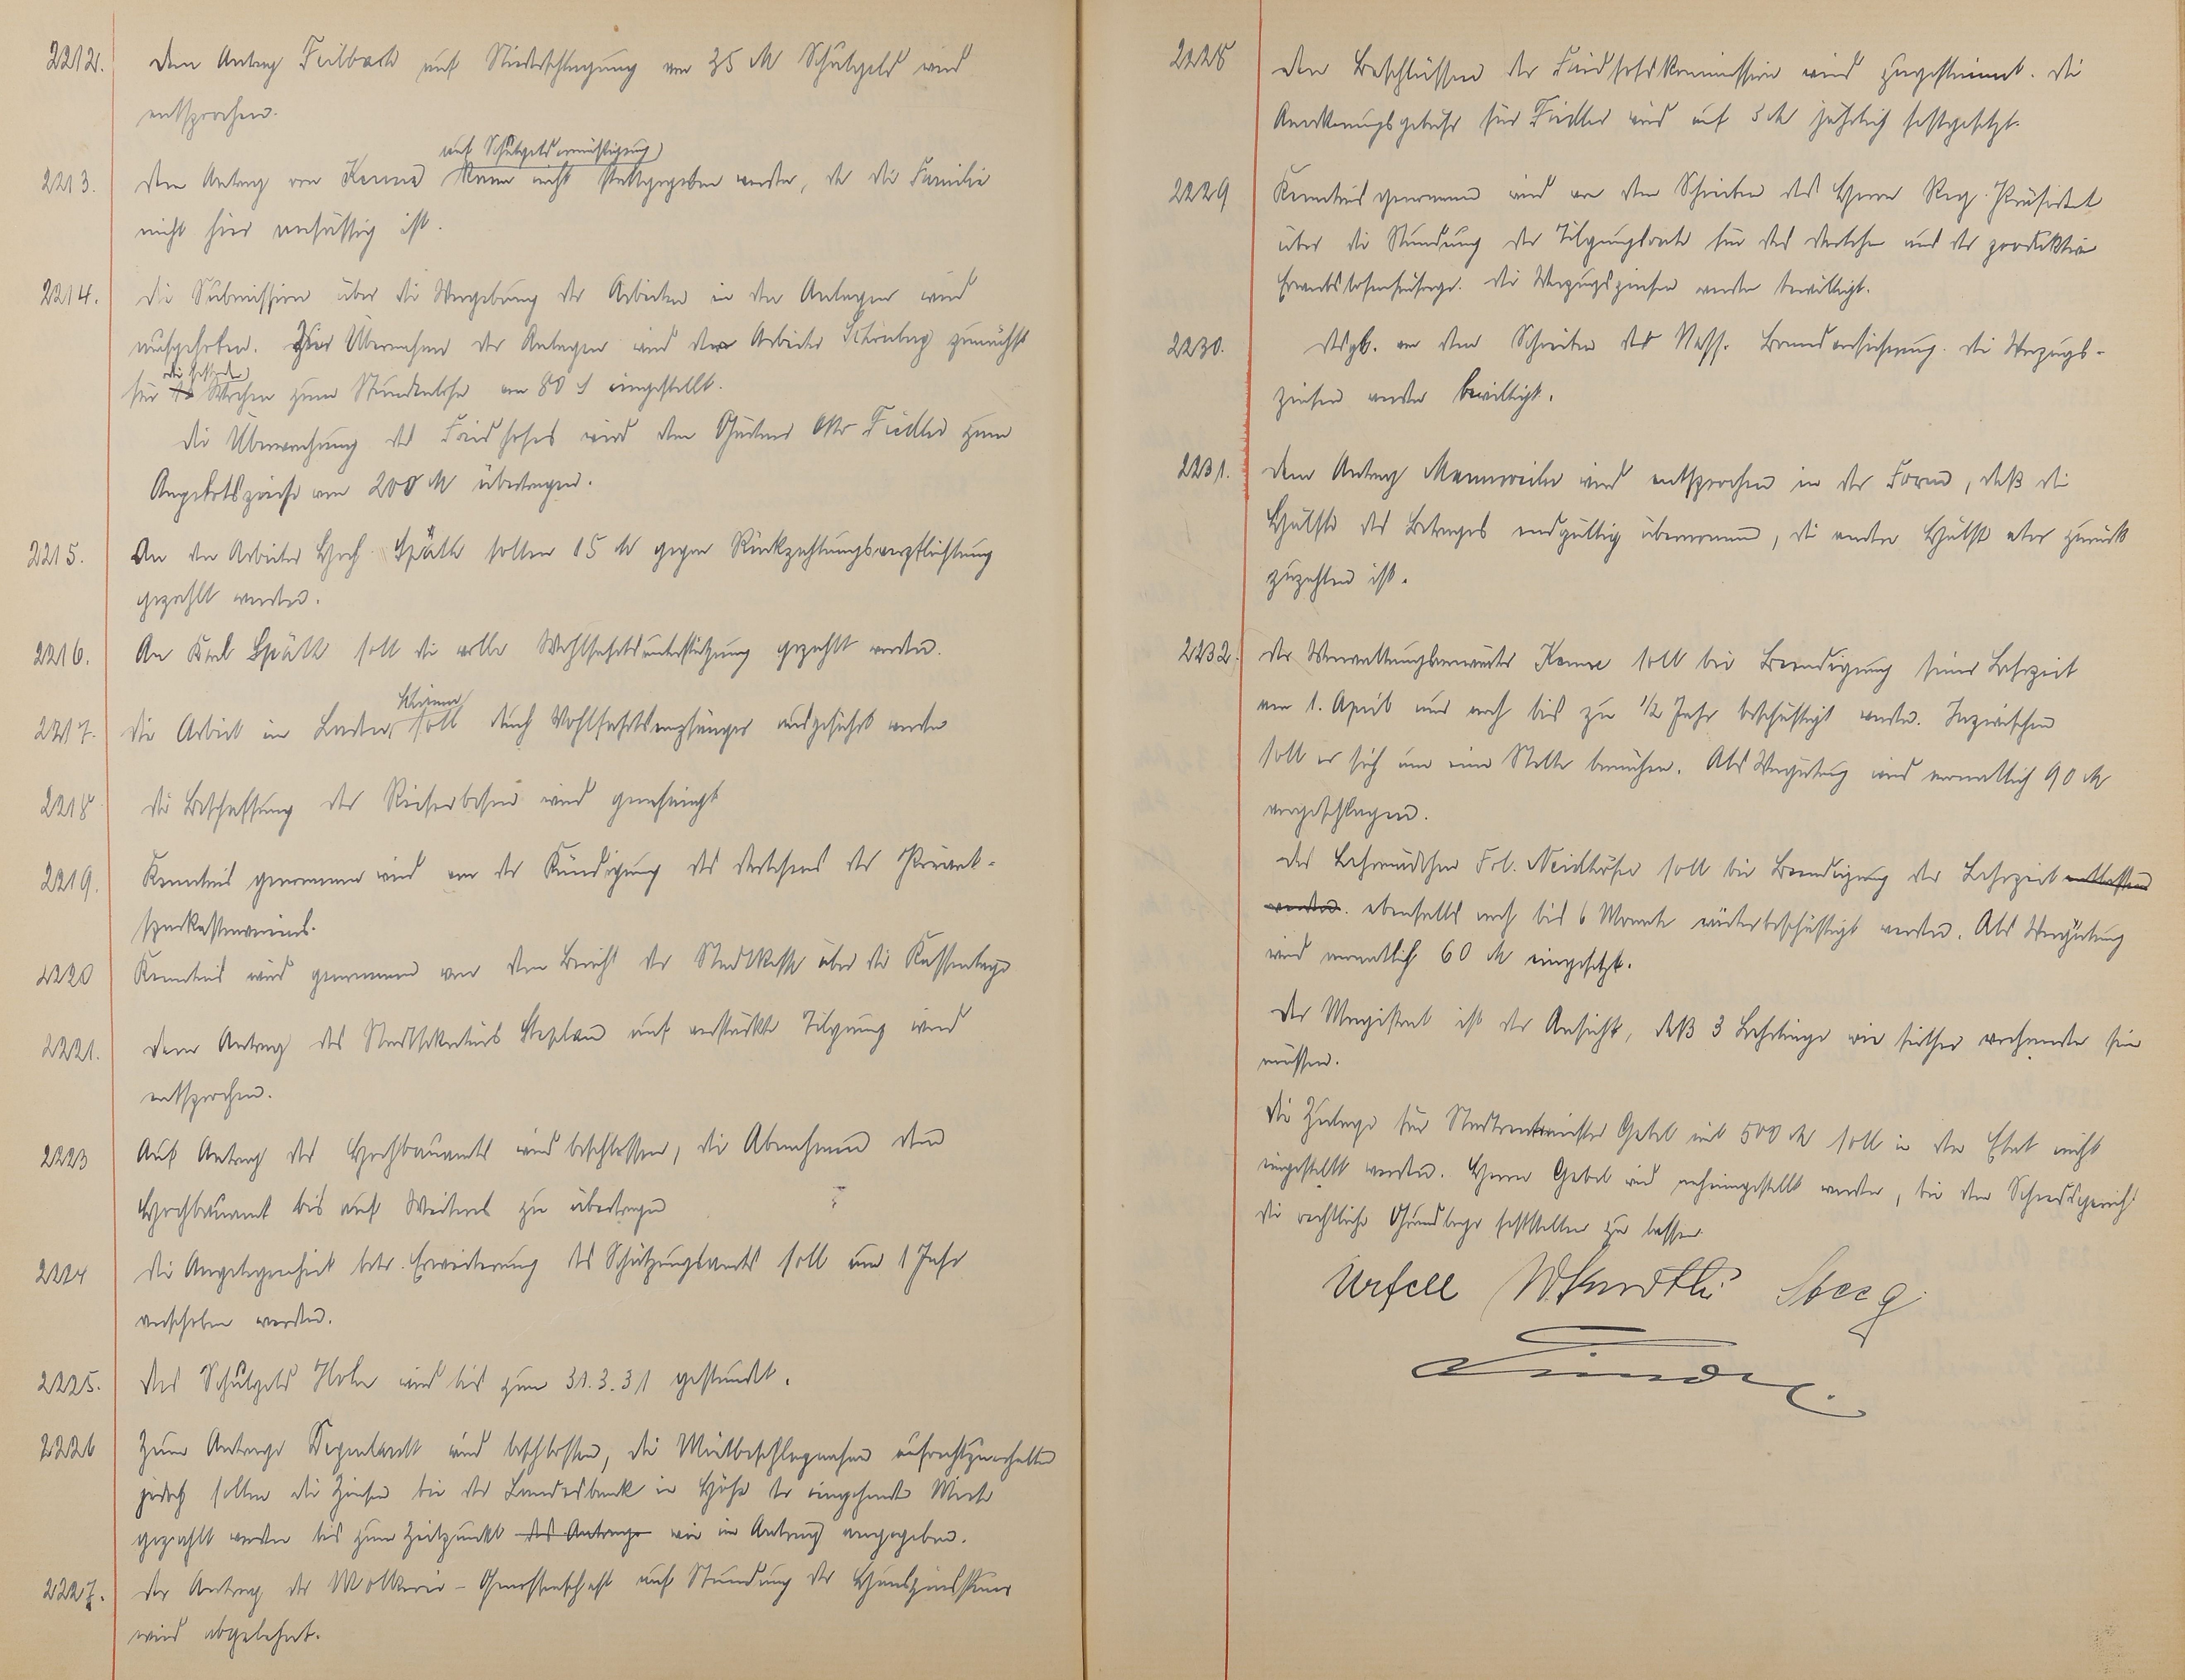 2212. Dem Antrag Feilbach auf Niederschlagung von 35 M Schulgeld wird
entsprochen.
auf Schulgeldermäßigung
2213. Dem Antrag von Kenne kann nicht stattgegeben werden, da die Familie
nicht hier ansässig ist.
2214. Die Submission über die Vergebung der Arbeiten in den Anlagen wird
aufgehoben. Zur Übernahme der Anlagen wird der Arbeiter Schrulag zunächst
für Wochen zum Stundenlohn von 80 ₰ eingestellt.
Die Überwachung des Friedhofes wird dem Gärtner Otto Fiedler zum
Angebotspreise von 200 M übertragen.
2215. An den Arbeiter Späth sollen 15 M gegen Rückzahlungsverpflichtung
gezahlt werden.
2216. An Karl Späth soll die volle Wohlfahrtsunterstützung gezahlt werden.
2217. Die Arbeit im soll durch Wohlfahrtsempfänger ausgeführt werden
2218 Die Beschaffung der Reiserbesen wird genehmigt
2219. Kenntnis genommen wird von der Kündigung des Darlehens des Privat-
sparkassenvereins.
2220 Kenntnis wird genommen von dem Bericht der Stadtkasse über die Kassenlage
2221. Dem Antrag des Stadtsekretärs Stephan auf verstärkte Tilgung wird
entsprochen.
2223 Auf Antrag des Hochbauamts wird beschlossen, die Abnahmen dem
Hochbauamt bis auf Weiteres zu übertragen
2224 Die Angelegenheit betr. Erweiterung des Schätzungsamts soll um 1 Jahr
verschoben werden.
2225. Das Schulgeld Hohn wird bis zum 31.3.31 gestundet.
2226 Zum Antrage Degenhardt wird beschlossen, die Mietbeschlagnahme aufrechtzuerhalten
jedoch sollen die Zinsen bei der Landesbank in Höhe der eingehenden Miete
gezahlt werden bis zum Zeitpunkt des Antrags wie im Antrag angegeben.
2227. Der Antrag der Molkerei-Genossenschaft auf Stundung der Hauszinssteuer
wird abgelehnt.
2228 Den Beschlüssen der Friedhofskommission wird zugestimmt. Die
Anerkennungsgebühr für Fiedler wird auf 5 M jährlich festgesetzt.
2229 Kenntnis genommen wird von dem Schreiben des Herrn Reg. Präsident
über die Stundung der Tilgungsrate für das Darlehen aus der produktiven
Erwerbslosenfürsorge. Die Verzugszinsen werden bewilligt.
2230. Desgl. von dem Schreiben der Nass. Brandversicherung. Die Verzugs-
zinsen werden bewilligt.
2231. Dem Antrag Mannweiler wird entsprochen in der Form, daß die
Hälfte des Betrages endgültig übernommen, die andere Hälfte aber zurück
zuzahlen ist.
2232. Der Verwaltungsanwärter Kenne soll bei Beendigung seiner Lehrzeit
am 1. April nur noch bis zu 1/2 Jahr beschäftigt werden. Inzwischen
soll er sich um eine Stelle bemühen. Als Vergütung wird monatlich 90 M
vorgeschlagen.
Das Lehrmädchen Frl. Neidhöfer soll bei Beendigung der Lehrzeit entlassen
werden. ebenfalls noch bis 6 Monate weiterbeschäftigt werden. Als Vergütung
wird monatlich 60 M eingesetzt.
Der Magistrat ist der Ansicht, daß 3 Lehrlinge wie seither vorhanden sein
müssen.
Die Zulage für Stadtrentmeister Gebel mit 500 M soll in den Etat nicht
eingestellt werden. Herrn Gebel wird anheimgestellt werden, bei dem Schiedsgericht
die rechtliche Grundlage feststellen zu lassen.
Urfell Steeg